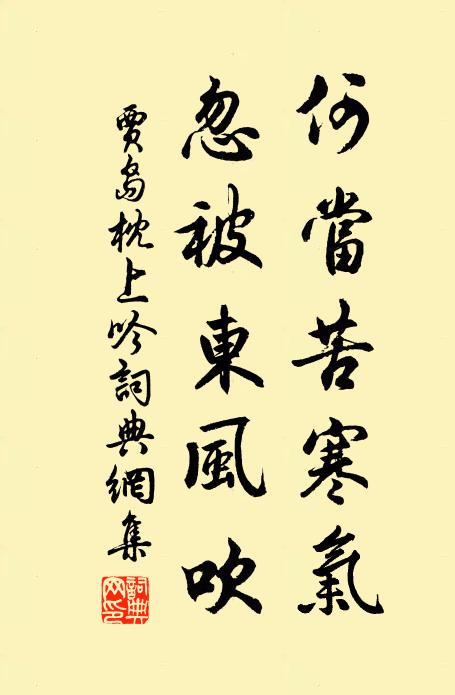 何當苦寒氣
忽被東風吹
賈島枕上吟詞典網集
詞典网印